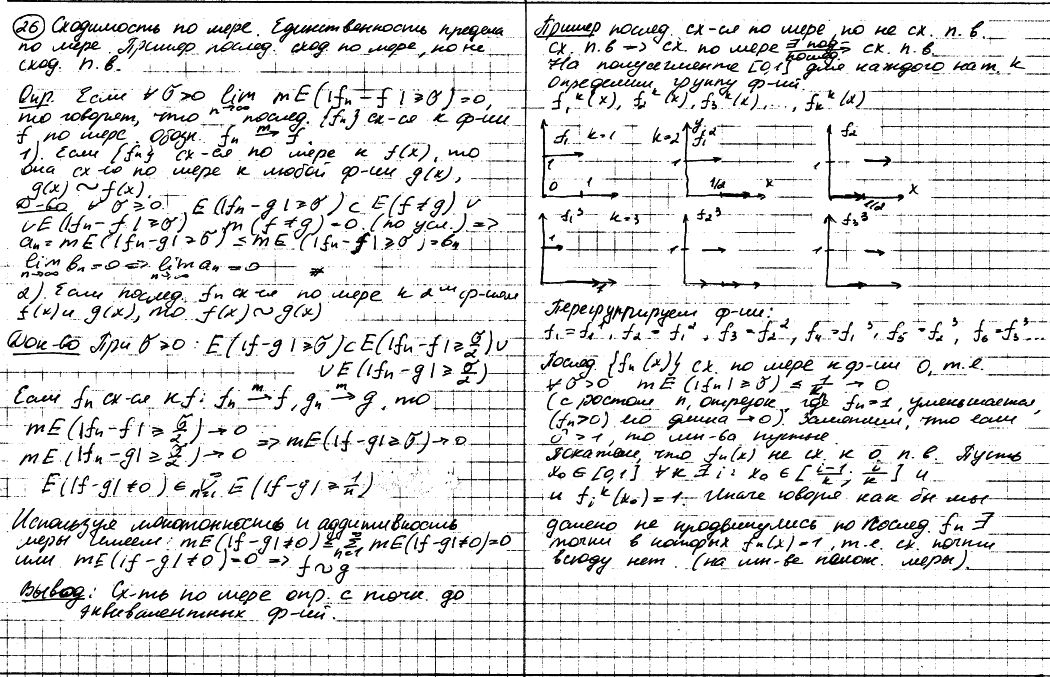 26 Сходимость по мере. Единственность предела
по мере. Пример послед. сход. по мере, но не
сход. п.в.
Опр. Если ∀ σ>0 lim n→∞ mE(|fn − f| ≥ σ) = 0,
то говорят, что послед. {fn} сх-ся к ф-ии
f по мере. обозн. fn →m f.
1). Если {fn} сх-ся по мере к f(x), то
она сх-ся по мере к любой ф-ии g(x),
g(x) ~ f(x)
Д-во ∀ σ>0. E(|fn−g| ≥ σ) ⊂ E(f≠g) ∪
∪ E(|fn−f| ≥ σ) m(f≠g)=0 (по усл.) =>
an = mE(|fn−g| ≥ σ) ≤ mE(|fn−f| ≥ σ) = bn
lim n→∞ bn = 0 => lim n→∞ an = 0 #
2). Если послед. fn сх-ся по мере к 2м ф-иям
f(x) и g(x), то f(x) ~ g(x)
Док-во При σ>0: E(|f−g| ≥ σ) ⊂ E(|fn−f| ≥ σ/2) ∪
∪ E(|fn−g| ≥ σ/2)
Если fn сх-ся к f: fn →m f, gn →m g, то
mE(|fn−f| ≥ σ/2) → 0
=> mE(|f−g| ≥ σ) → 0
mE(|fn−g| ≥ σ/2) → 0
E(|f−g| ≠ 0) ∈ ∪ n=1 ∞ E(|f−g| ≥ 1/n)
Используя монотонность и аддитивность
меры имеем: mE(|f−g|≠0) ≤ Σ n=1 ∞ mE(|f−g|≠0)=0
или mE(|f−g|≠0)=0 => f~g
Вывод: Сх-ть по мере опр. с точн. до
эквивалентных ф-ий.
Пример послед. сх-ся по мере, но не сх. п.в.
сх. п.в => сх. по мере ∃ под послед. => сх. п.в.
На полусегменте [0,1] для каждого нат. k
определим группу ф-ий.
f1^k(x), f2^k(x), f3^k(x), ..., fk^k(x)
f1 k=1 k=2 y f1^2 f2
1 1 1
0 1 1/2 x 1/2 x
f1^3 k=3 f2^3 f3^3
1
Перегруппируем ф-ии:
f1=f1^1, f2=f1^2, f3=f2^2, f4=f1^3, f5=f2^3, f6=f3^3...
Послед. {fn(x)} сх. по мере к ф-ии 0, т.е.
∀ σ>0 mE(|fn| ≥ σ) ≤ 1/k → 0
(с ростом n, отрезок, где fn=1, уменьшается,
(fn>0) его длина → 0). Заметим, что если
σ>1, то мн-ва пустые.
Покажем, что fn(x) не сх. к 0 п.в. Пусть
x0 ∈ [0,1] ∀k ∃ i: x0 ∈ [(i−1)/k, i/k] и
и fi^k(x0)=1. Иначе говоря как бы мы
далеко не продвинулись по послед. fn ∃
точки в которых fn(x)=1, т.е. сх. почти
всюду нет. (на мн-ве полож. меры).